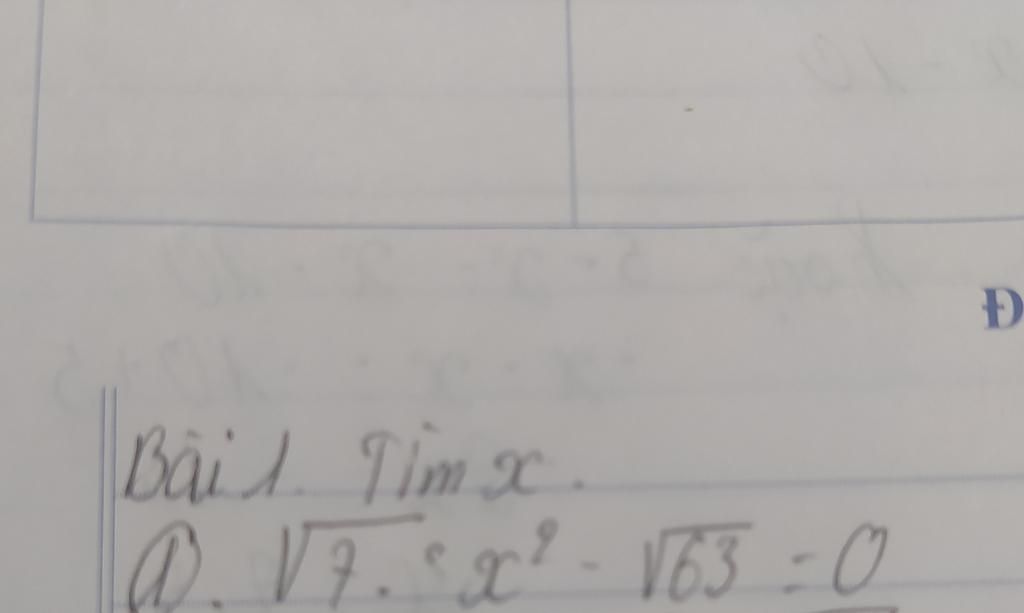 Đ
Bài 1. Tìm x.
①. √7. x² - √63 = 0